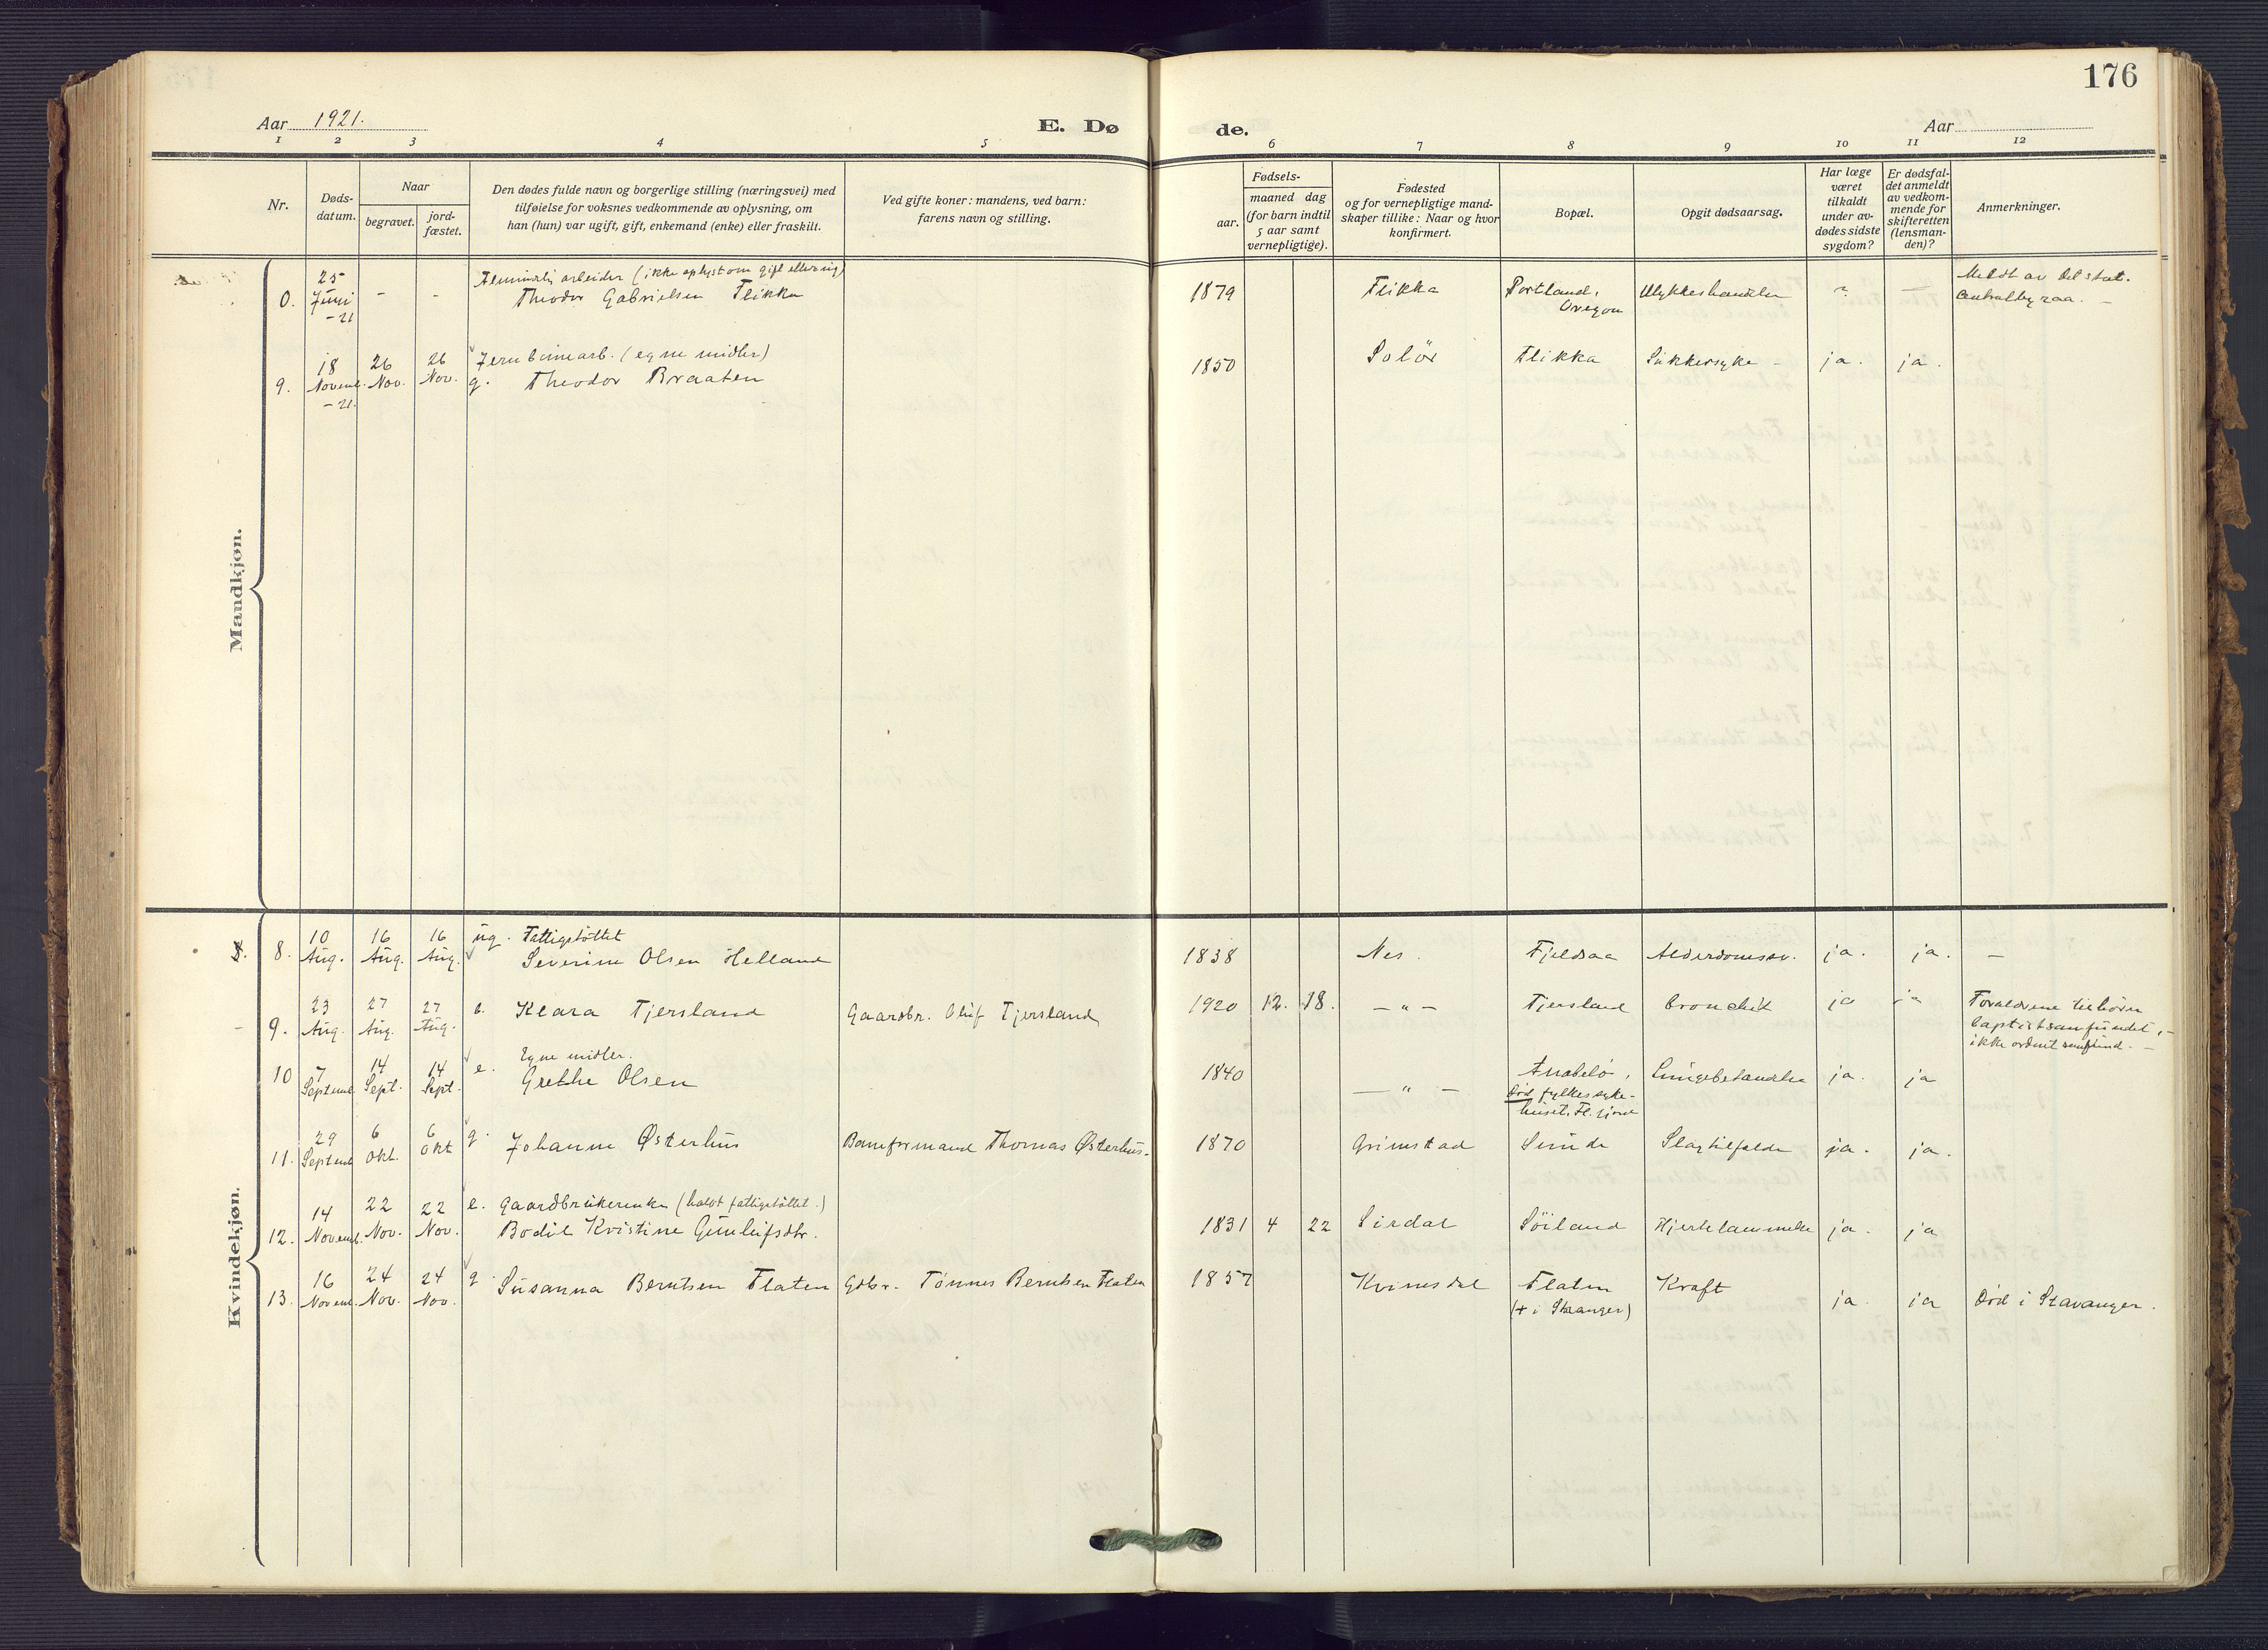 176
Aar 1921.
E. Dø
de.
Aar
1 2 3 4 5 6 7 8 9 10 11 12
Nr.
Døds-
datum.
Naar
begravet.
jord-
fæstet.
Den dødes fulde navn og borgerlige stilling (næringsvei) med
tilføielse for voksnes vedkommende av oplysning, om
han (hun) var ugift, gift, enkemand (enke) eller fraskilt.
Ved gifte koner: mandens, ved barn:
farens navn og stilling.
aar.
Fødsels-
maaned dag
(for barn indtil
5 aar samt
vernepligtige).
Fødested
og for vernepligtige mand-
skaper tillike: Naar og hvor
konfirmert.
Bopæl.
Opgit dødsaarsag.
Har læge
været
tilkaldt
under av-
dødes sidste
sygdom?
Er dødsfal-
det anmeldt
av vedkom-
mende for
skifteretten
(lensman-
den)?
Anmerkninger.
Mandkjøn.
0. 25 Juni -21 - - arbeider (ikke oplyst om gift eller ug)
Theodor Gabrielsen Flikka 1879 Flikka Portland, Oregon Ulykkeshændelse ? — Meldt av det stat.
Centralbyraa. —
9. 18 Novemb. -21. 26 Nov. 26 Nov. Jernbanearb. (egne midler)
g. Theodor Braaten 1850 Solör Flikka Sukkersyke - ja. ja.
Kvindekjøn.
8. 10 Aug. 16 Aug. 16 Aug. ug. Fattigstöttet
Severine Olsen Helland 1838 Nes. Fjeldsaa Alderdomssv. ja. ja. —
9. 23 Aug. 27 Aug. 27 Aug. b. Klara Tjersland Gaardbr. Oluf Tjersland 1920 12. 18. — " — Tjersland bronchit ja ja Forældrene tilhörer
baptistsamfundet, -
ikke ordnet samfund. —
10 7 Septemb 14 Sept. 14 Sept. e. Egne midler.
Grethe Olsen 1840 — " — Anabelö,
död fylkessyke-
huset, Fl. fjord Lungebetændelse ja. ja
11. 29 Septemb 6 Okt. 6 Okt g. Johanne Østerhus Baneformand Thomas Østerhus. 1870 Grimstad Sunde Slagtilfælde ja. ja.
12. 14 Novemb. 22 Nov. 22 Nov. e. Gaardbrukerenke (halvt fattigstöttet.)
Bodil Kristine Gunleifsdtr. 1831 4 22 Sirdal Söiland Hjertelammelse ja. ja
13. 16 Novemb. 24 Nov. 24 Nov. g. Susanna Berntsen Flaten Gdbr. Tönnes Berntsen Flaten 1857 Kvinesdal Flaten
(+ i Stavanger) Kræft ja ja Död i Stavanger.